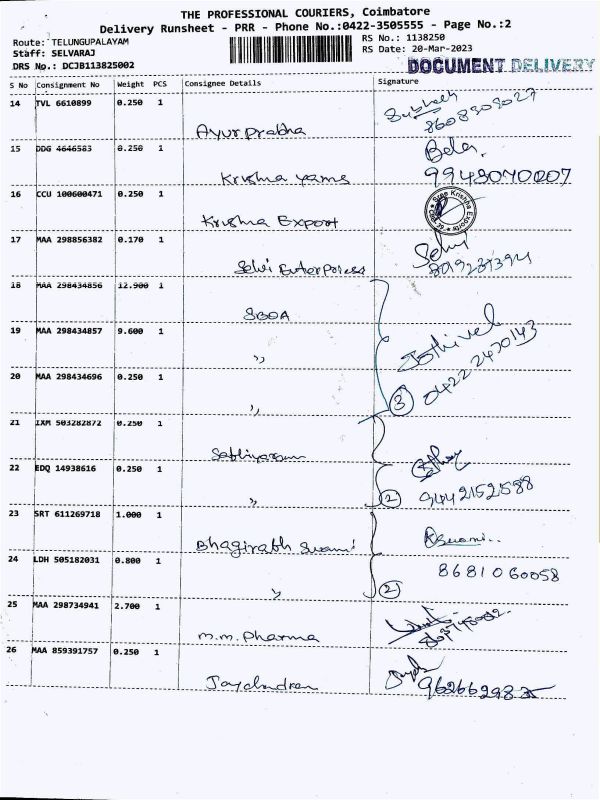 THE PROFESSIONAL COURIERS, Coimbatore
Delivery Runsheet - PRR - Phone No.:0422-3505555 - Page No.:2
Route: TELUNGUPALAYAM
Staff: SELVARAJ
DRS No.: DCJB113825002
RS No.: 1138250
RS Date: 20-Mar-2023
DOCUMENT DELIVERY
S No Consignment No Weight PCS Consignee Details Signature
14 TVL 6610899 0.250 1 Ayur prabha
15 DDG 4646583 0.250 1 Krishna yams Bala. 9948070007
16 CCU 100600471 0.250 1 Krishna Export
17 MAA 298856382 0.170 1 Selvi Enterprises Selvi
18 MAA 298434856 12.900 1 SBOA
19 MAA 298434857 9.600 1 " Jothivel 0422 2470143
20 MAA 298434696 0.250 1 " 3
21 IXM 503282872 0.250 1
22 EDQ 14938616 0.250 1 " 2 9442152588
23 SRT 611269718 1.000 1 Bhagirabh Swami
24 LDH 505182031 0.800 1 " 2 8681060058
25 MAA 298734941 2.700 1 m.m. pharma
26 MAA 859391757 0.250 1 Jayachandran